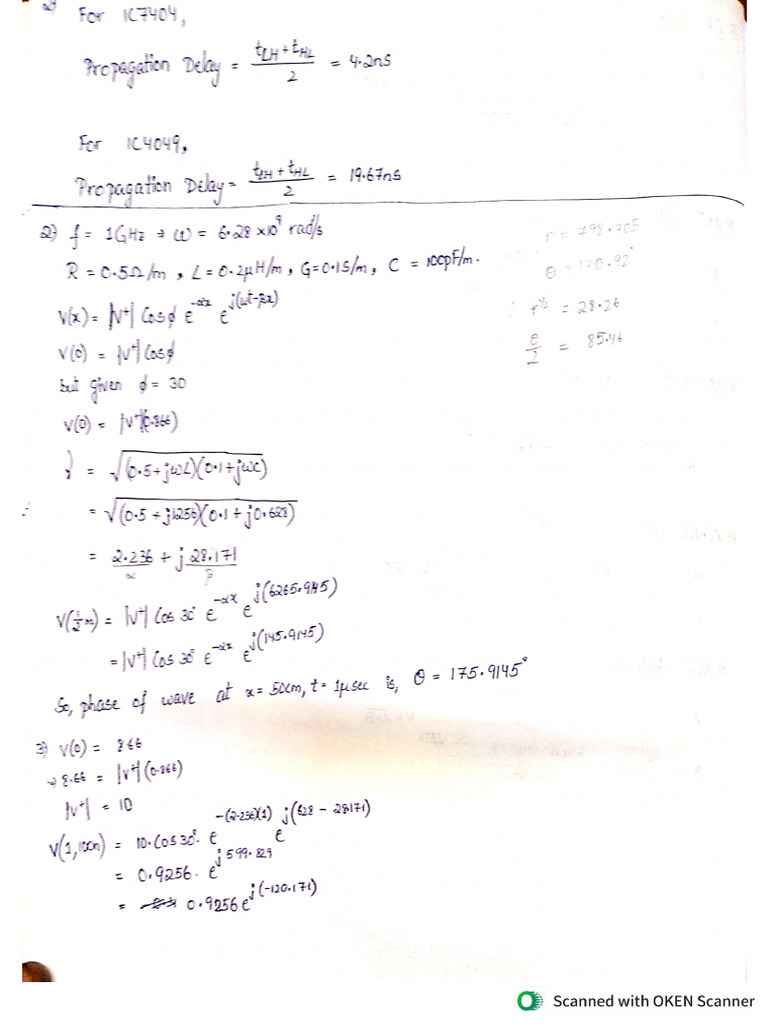 2)
For IC7404,
Propagation Delay = (tLH + tHL)/2 = 4.2ns
For IC4049,
Propagation Delay = (tLH + tHL)/2 = 19.67ns
2) f = 1GHz → ω = 6.28 × 10⁹ rad/s
R = 0.5Ω/m, L = 0.2μH/m, G = 0.1S/m, C = 100pF/m.
V(x) = |V⁺| Cosφ e^(-αx) e^(j(ωt-βx))
V(0) = |V⁺| Cosφ
but given φ = 30
V(0) = |V⁺|(0.866)
γ = √((0.5+jωL)(0.1+jωC))
= √((0.5+j1256)(0.1+j0.628))
= 2.236 + j 28.171
α β
V(½m) = |V⁺| Cos 30° e^(-αx) e^(j(6265.9145))
= |V⁺| Cos 30° e^(-αx) e^(j(145.9145))
So, phase of wave at x = 50cm, t = 1μsec is, θ = 175.9145°
3) V(0) = 8.66
→ 8.66 = |V⁺|(0.866)
|V⁺| = 10
V(1,100n) = 10.Cos30° e^(-(2.236)(1)) e^(j(628 - 28.171))
= 0.9256. e^(j599.829)
= 0.9256 e^(j(-120.171))
r = 798.705
θ = 170.92°
r^½ = 28.26
θ/2 = 85.46
Scanned with OKEN Scanner